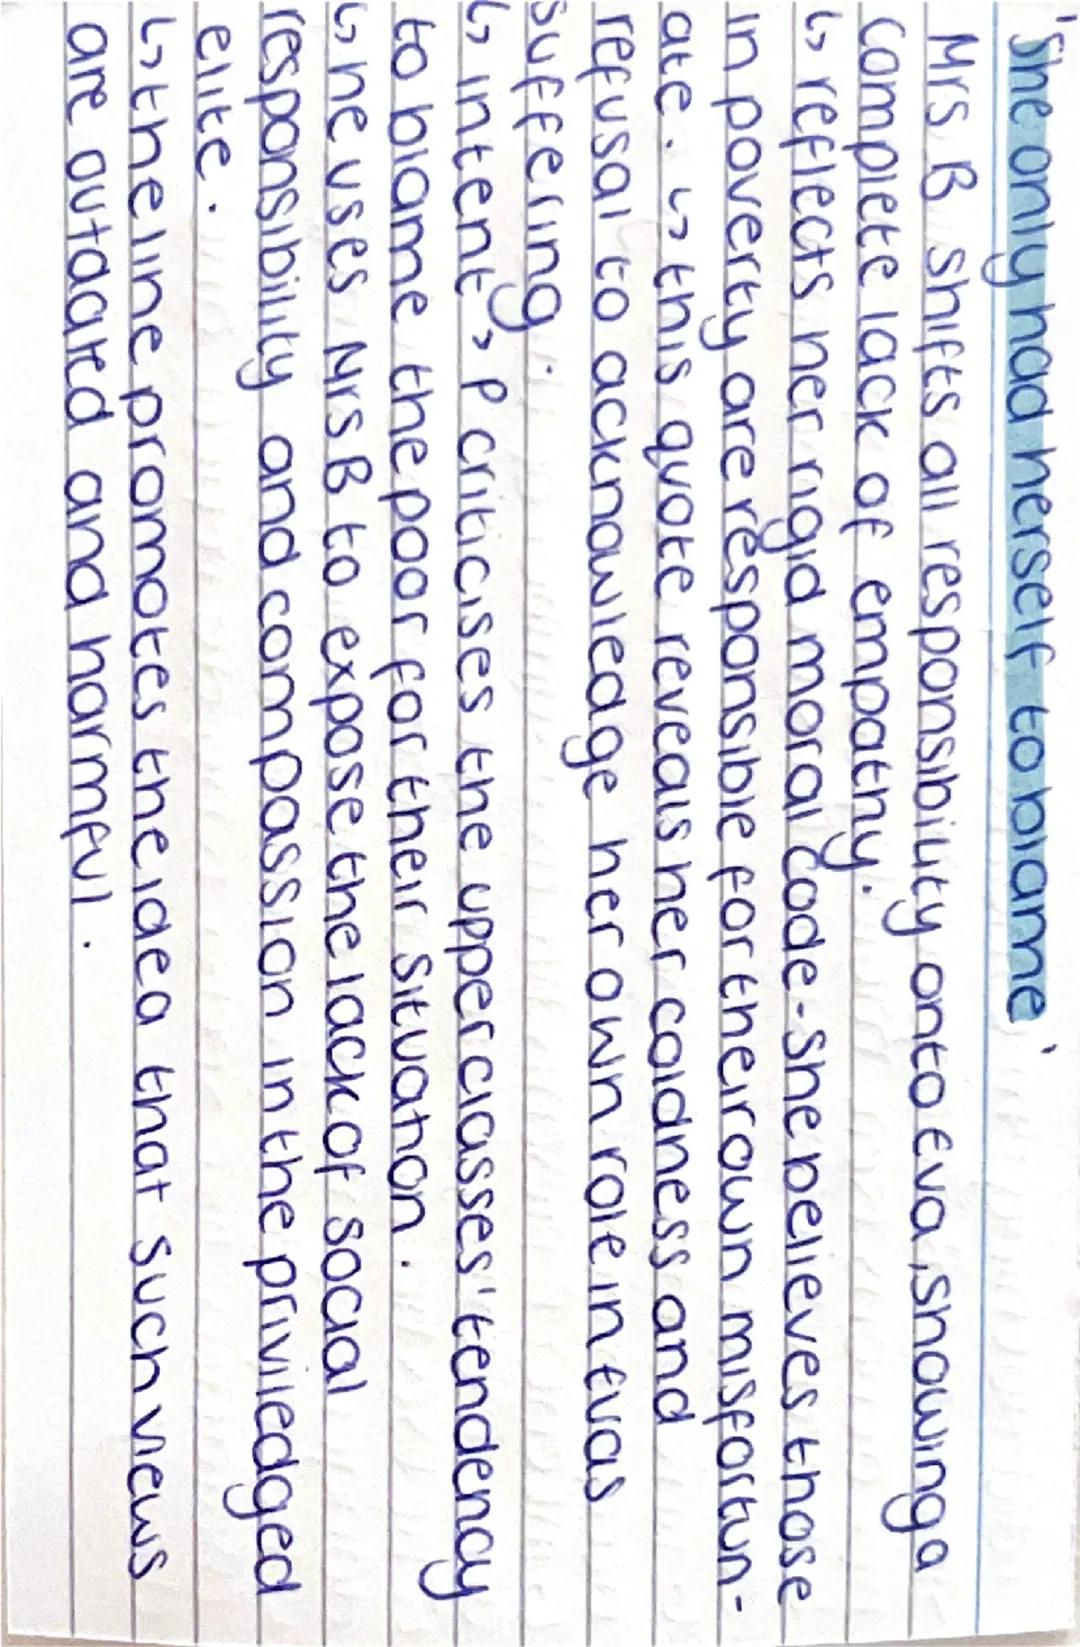 'She only had herself to blame'
Mrs B shifts all responsibility onto Eva, showing a
complete lack of empathy.
↳ reflects her rigid moral code - she believes those
in poverty are responsible for their own misfortun-
ate. ↳ this quote reveals her coldness and
refusal to acknowledge her own role in Evas
suffering.
↳ intent > P criticises the upper classes' tendency
to blame the poor for their situation.
↳ he uses Mrs B to expose the lack of social
responsibility and compassion in the priviledged
elite.
↳ the line promotes the idea that such views
are outdated and harmful.